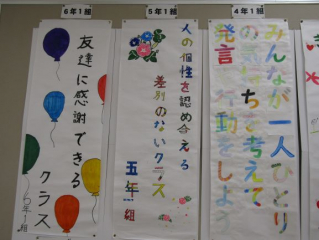 6年1組
友達に感謝できる
クラス
6年1組
5年1組
人の個性を認め合える
差別のないクラス
五年一組
4年1組
みんなが一人ひとり
の気持ちを考えて
発言 行動をしよう